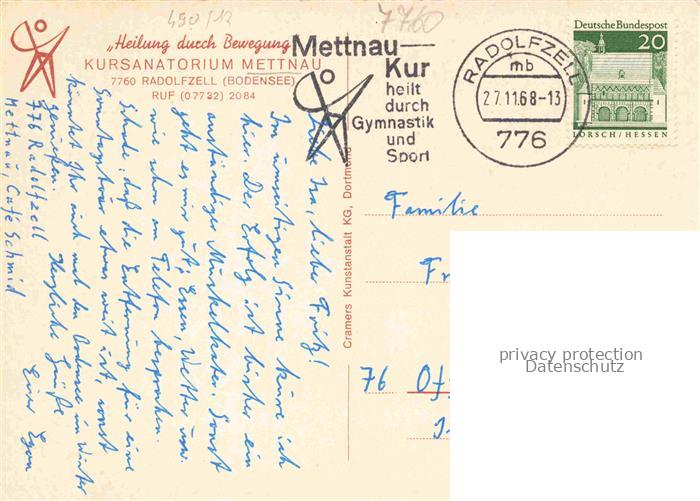 490/12
7760
„Heilung durch Bewegung“
KURSANATORIUM METTNAU
7760 RADOLFZELL (BODENSEE)
RUF (07732) 2084
Mettnau—
Kur
heilt
durch
Gymnastik
und
Sport
RADOLFZELL
mb
27.11.68-13
776
Deutsche Bundespost
20
LORSCH/HESSEN
Cramers Kunstanstalt KG, Dortmund
Isa, lieber Fritz!
Im umseitigen Sinne kure ich
hier. Der Erfolg ist bisher ein
anständiger Muskelkater. Sonst
geht es mir gut, Essen, Wetter usw.
wie schon am Telefon besprochen.
Schade, daß die Entfernung für eine
Sonntagstour etwas weit ist, sonst
könntet Ihr auch mal den Bodensee im Winter
genießen. Herzliche Grüße
Euer Egon
776 Radolfzell
Mettnau, Café Schmid
Familie
Fr
76 Off
privacy protection
Datenschutz